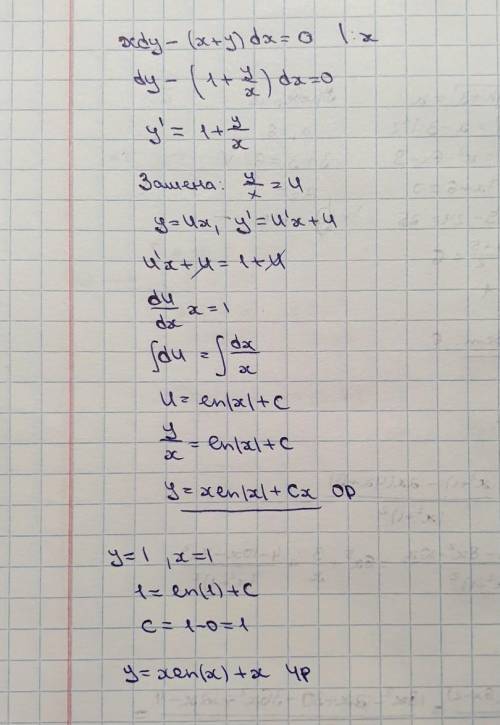 xdy - (x+y) dx = 0 |:x
dy - (1 + y/x) dx = 0
y' = 1 + y/x
Замена: y/x = u
y = ux, y' = u'x + u
u'x + u = 1 + u
du/dx x = 1
∫du = ∫dx/x
u = ln|x| + c
y/x = ln|x| + c
y = xln|x| + Cx ОР
y = 1, x = 1
1 = ln(1) + c
c = 1 - 0 = 1
y = xln(x) + x ЧР